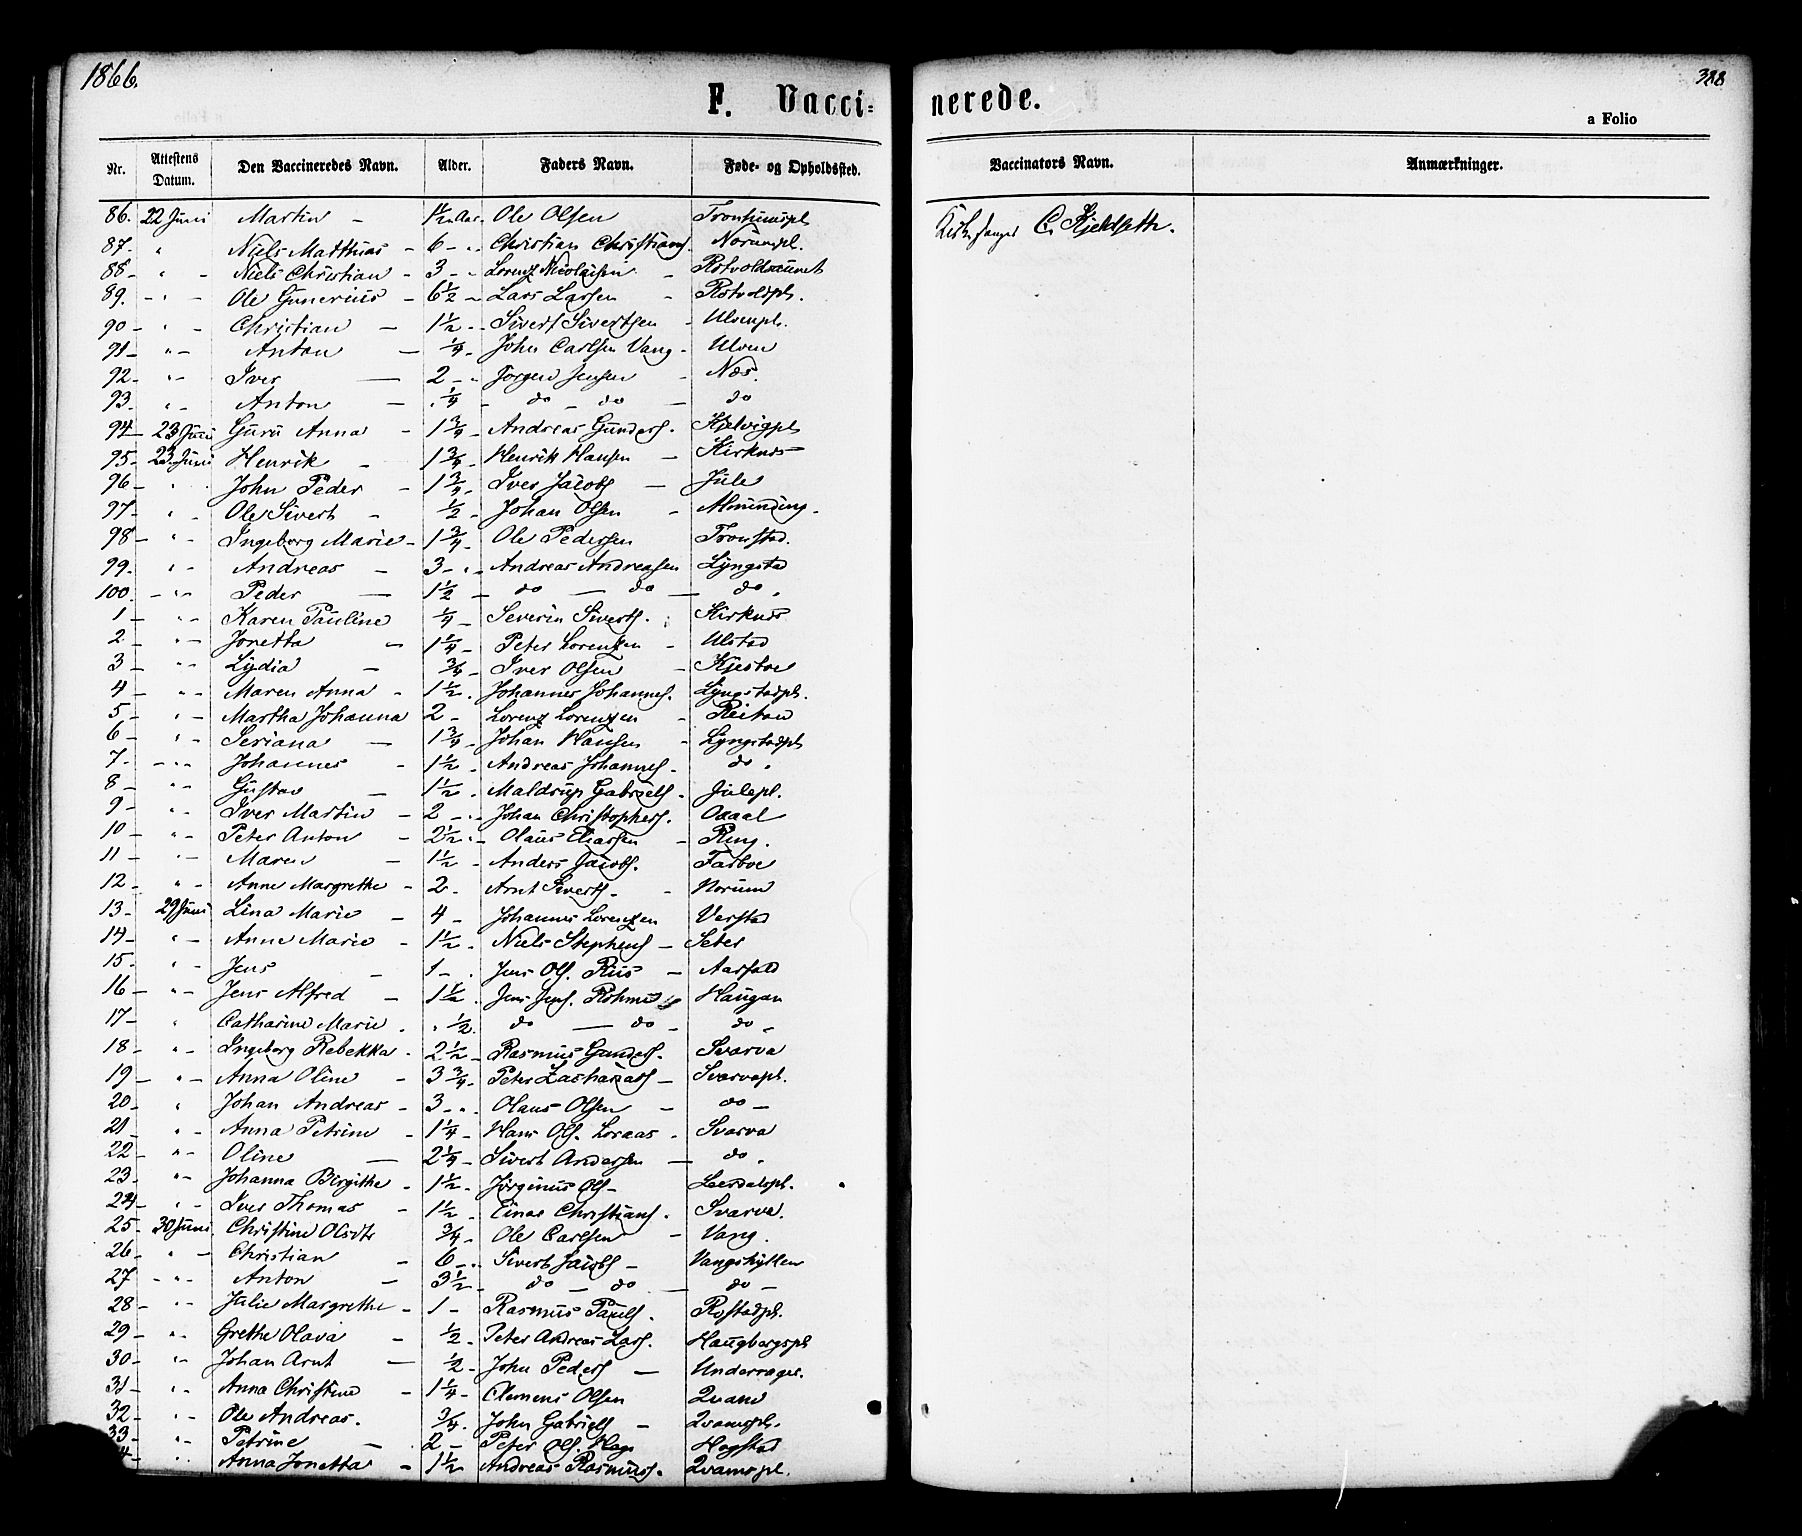 1866.
388
F. Vaccinerede.
a Folio
Nr. Attestens Datum. Den Vaccineredes Navn. Alder. Faders Navn. Føde- og Opholdssted. Vaccinators Navn. Anmærkninger.
86. 22 Juni Martin - 1½ Aar. Ole Olsen Kirkesanger C.
87. " Niels Matthias - 6 - " Christian Christians. Norumpl.
88 - " - Niels Christian - 3 - " Lorenz Nicolaisen -
89. - " - Ole Gunerius - 6½ - Lars Larsen - Rotvoldpl.
90 - " - Christian - 1½ - " Sivert Sivertsen - Ulvenpl.
91 - " - Anton - ¼ - John Carlsen Vang - Ulven
92 - " - Iver - 2 - " Jørgen Jensen - Næs.
93. " - Anton - " ¼ - do - do - do
94 - 23 Juni Guru Anna - 1¾ - Andreas Gunders. Kjelvigpl
95 - 23 Juni Henrik - 1¾ - Henrik Hansen - Kirknes
96 - " John Peder - 1¾ - Iver Jacobs - Jule
97 - " - Ole Sivert - ½ - Johan Olsen - Alminding -
98 - " - Ingeborg Marie - 1¾ - Ole Pedersen Tronstad.
99. " - Andreas - 3 - " - Andreas Andreasen Lyngstad
100. - " - Peder - 1½ - do - do - do "
1 - " - Karen Pauline ¼ - Severin Siverts. Kirknes
2. " - Jonetta - 1¼ - Peter Lorenzen - Ulstad
3 - " - Lydia - ¾ - Iver Olsen -
4 - " - Maren Anna - 1½ . Johannes Johannes. Lyngstadpl.
5 - " - Martha Johanna 2 - Lorenz Lorenzen - Reitan
6 - " - Seriana - 1¾ - Johan Hansen - Lyngstadpl
7. - " - Johannes - 1½ - Andreas Johannes - do "
8 - " - Gustav - 1½ - Maldrup Gabriels - Julepl.
9 - " - Iver Martin - 2 - " Johan Christophers.
10 - " - Peter Anton - 2½ " Olaus Eliassen - Ring.
11 - " - Maren - 1½ - Anders Jacobs.
12 - " - Anne Margrethe - 2 - Arnt Siverts - - Norum
13 - 29 Juni Lina Marie - 4 - Johannes Lorenzen Verstad
14 - " - Anne Marie - 1½ - Niels Stephens - Seter
15 - " - Jens - 1 - . Jens Ols. Rius -
16 - " - Jens Alfred - 1½ . Jens Jens. Haugan
17 - " Catharine Marie . " ½ . do - do - do "
18 - " - Ingeborg Rebekka . 2½ - Rasmus Gunders. Svarva
19 - " - Anna Oline - 3¾ - Peter Zachariass - Svarvapl.
20 - " Johan Andreas - 3 - " Olaus Olsen - do -
21 - " - Anna Petrine - 1¼ - Hans Ols. Loraas - Svarva
22 - " - Oline - 2¼ - Sivert Andersen - do .
23 - " - Johanna Birgithe - 1½ - Jørginus Ols - Leirdalspl.
24 - " - Iver Thomas - 1½ - Einar Christians. Svarva.
25 - 30 Juni Christine Ols ¾ - Ole Carlsen - Vang.
26 - " - Christian - 6 - " Sivert Jacobs - Vangshytten
27 - " - Anton - 3½ - do - do - do -
28 - " - Julie Margrethe - 1 - Rasmus Pauls. Rostadpl.
29 - " - Grethe Olava - ½ - Peter Andreas Lars. Haugbergspl
30 - " - Johan Arnt - ½ - John Peders -
31 - " - Anna Christine - 1¼ - Clemens Olsen Qvam
32 - " - Ole Andreas. ¾ . John Gabriels - Qvamspl.
33 - " - Petrine - 2 - Peter Ols. Hage Hogstad
" Anna Jonetta - 1½ Andreas Rasmuss. Qvamspl.